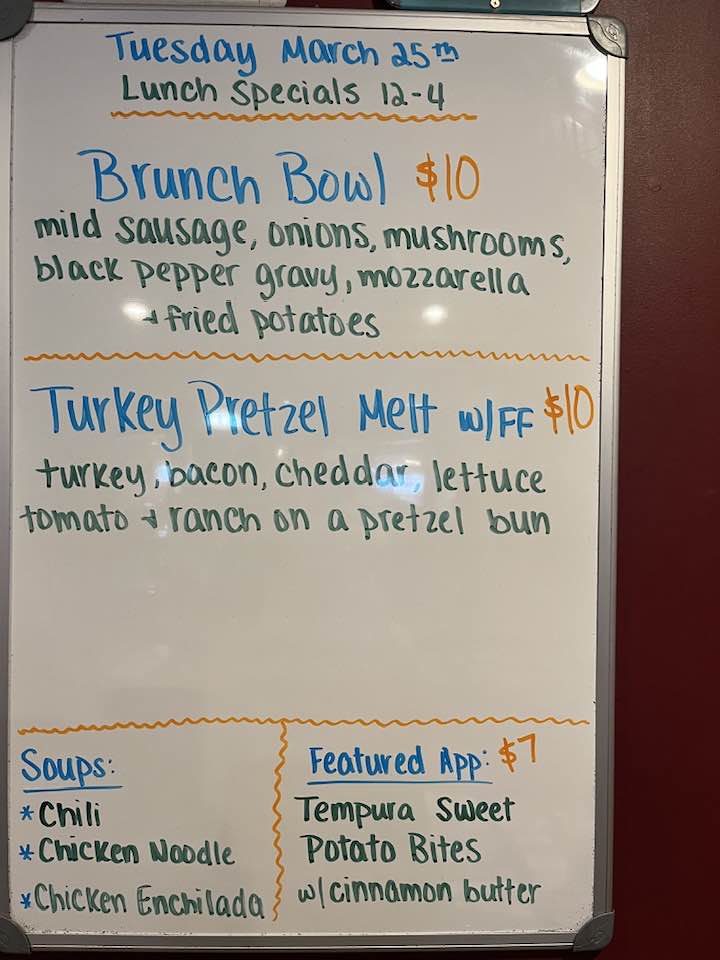 Tuesday March 25th
Lunch Specials 12-4
Brunch Bowl $10
mild sausage, onions, mushrooms,
black pepper gravy, mozzarella
+ fried potatoes
Turkey Pretzel Melt w/FF $10
turkey, bacon, cheddar, lettuce
tomato + ranch on a pretzel bun
Soups:
*Chili
*Chicken Noodle
*Chicken Enchilada
Featured App: $7
Tempura Sweet
Potato Bites
w/cinnamon butter